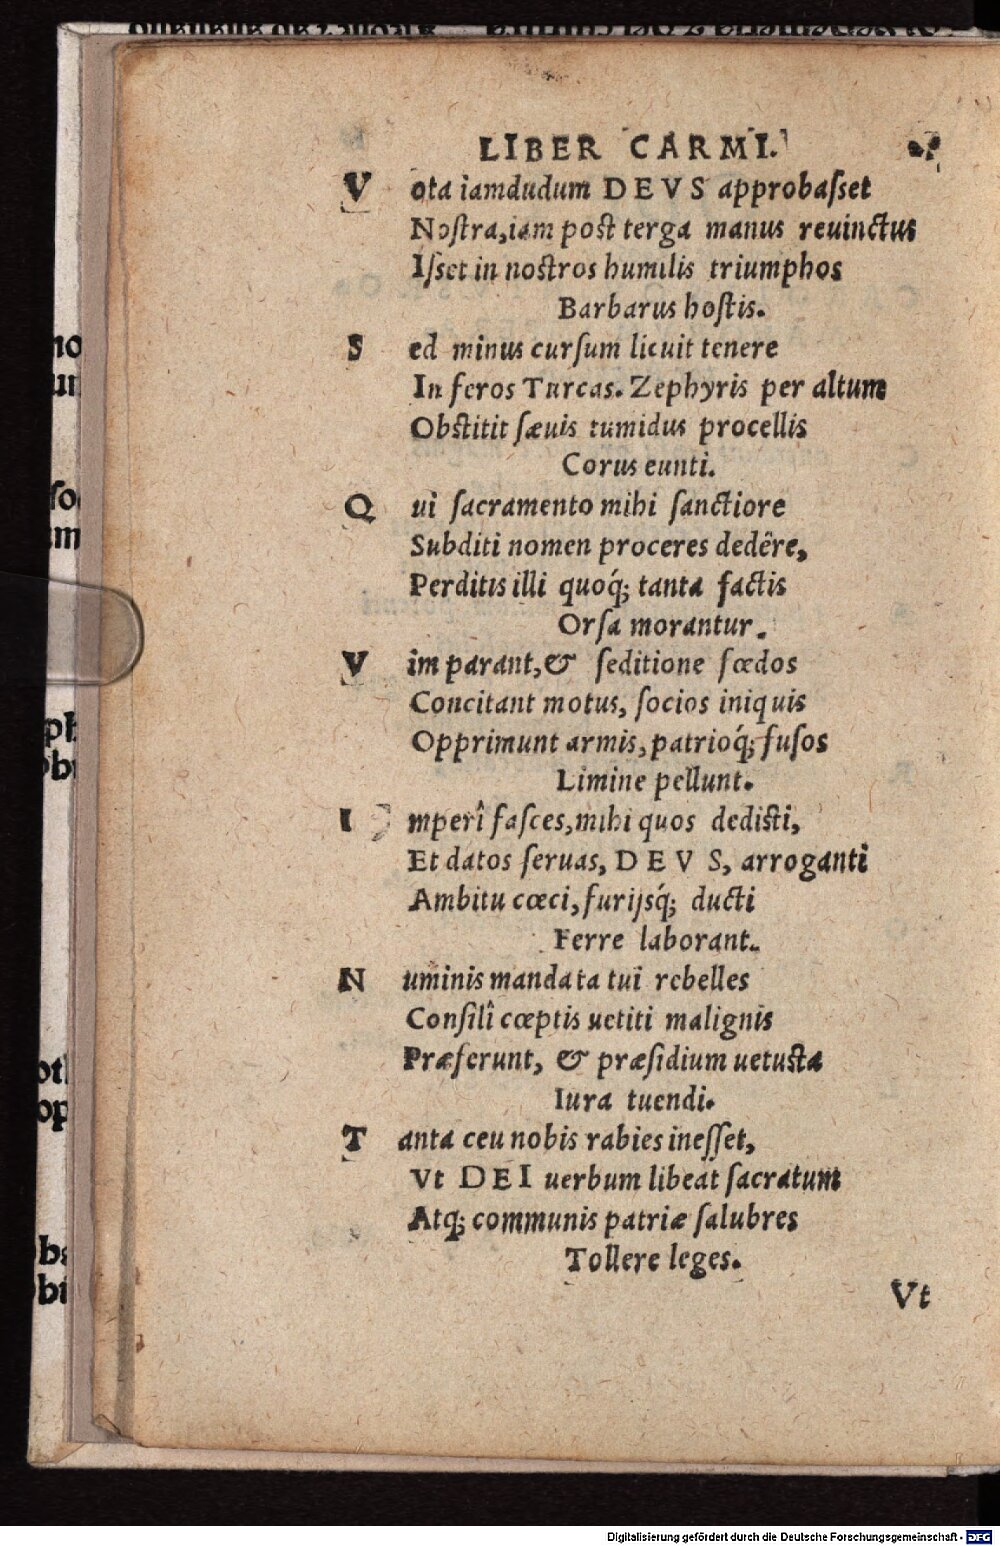 LIBER CARMI.
Vota iamdudum DEVS approbaſſet
Noſtra, iam poſt terga manus reuinctus
Iſſet in noſtros humilis triumphos
Barbarus hoſtis.
Sed minus curſum licuit tenere
In feros Turcas. Zephyris per altum
Obſtitit ſæuis tumidus procellis
Corus eunti.
Qui ſacramento mihi ſanctiore
Subditi nomen proceres dedêre,
Perditis illi quoq́; tanta factis
Orſa morantur.
Vim parant, & ſeditione fœdos
Concitant motus, ſocios iniquis
Opprimunt armis, patrioq́; fuſos
Limine pellunt.
Imperî faſces, mihi quos dediſti,
Et datos ſeruas, DEVS, arroganti
Ambitu cœci, furijsq́; ducti
Ferre laborant.
Numinis mandata tui rebelles
Conſilî cœptis uetiti malignis
Præferunt, & præſidium uetuſta
Iura tuendi.
Tanta ceu nobis rabies ineſſet,
Vt DEI uerbum libeat ſacratum
Atq; communis patriæ ſalubres
Tollere leges.
Vt
Digitalisierung gefördert durch die Deutsche Forschungsgemeinschaft - DFG